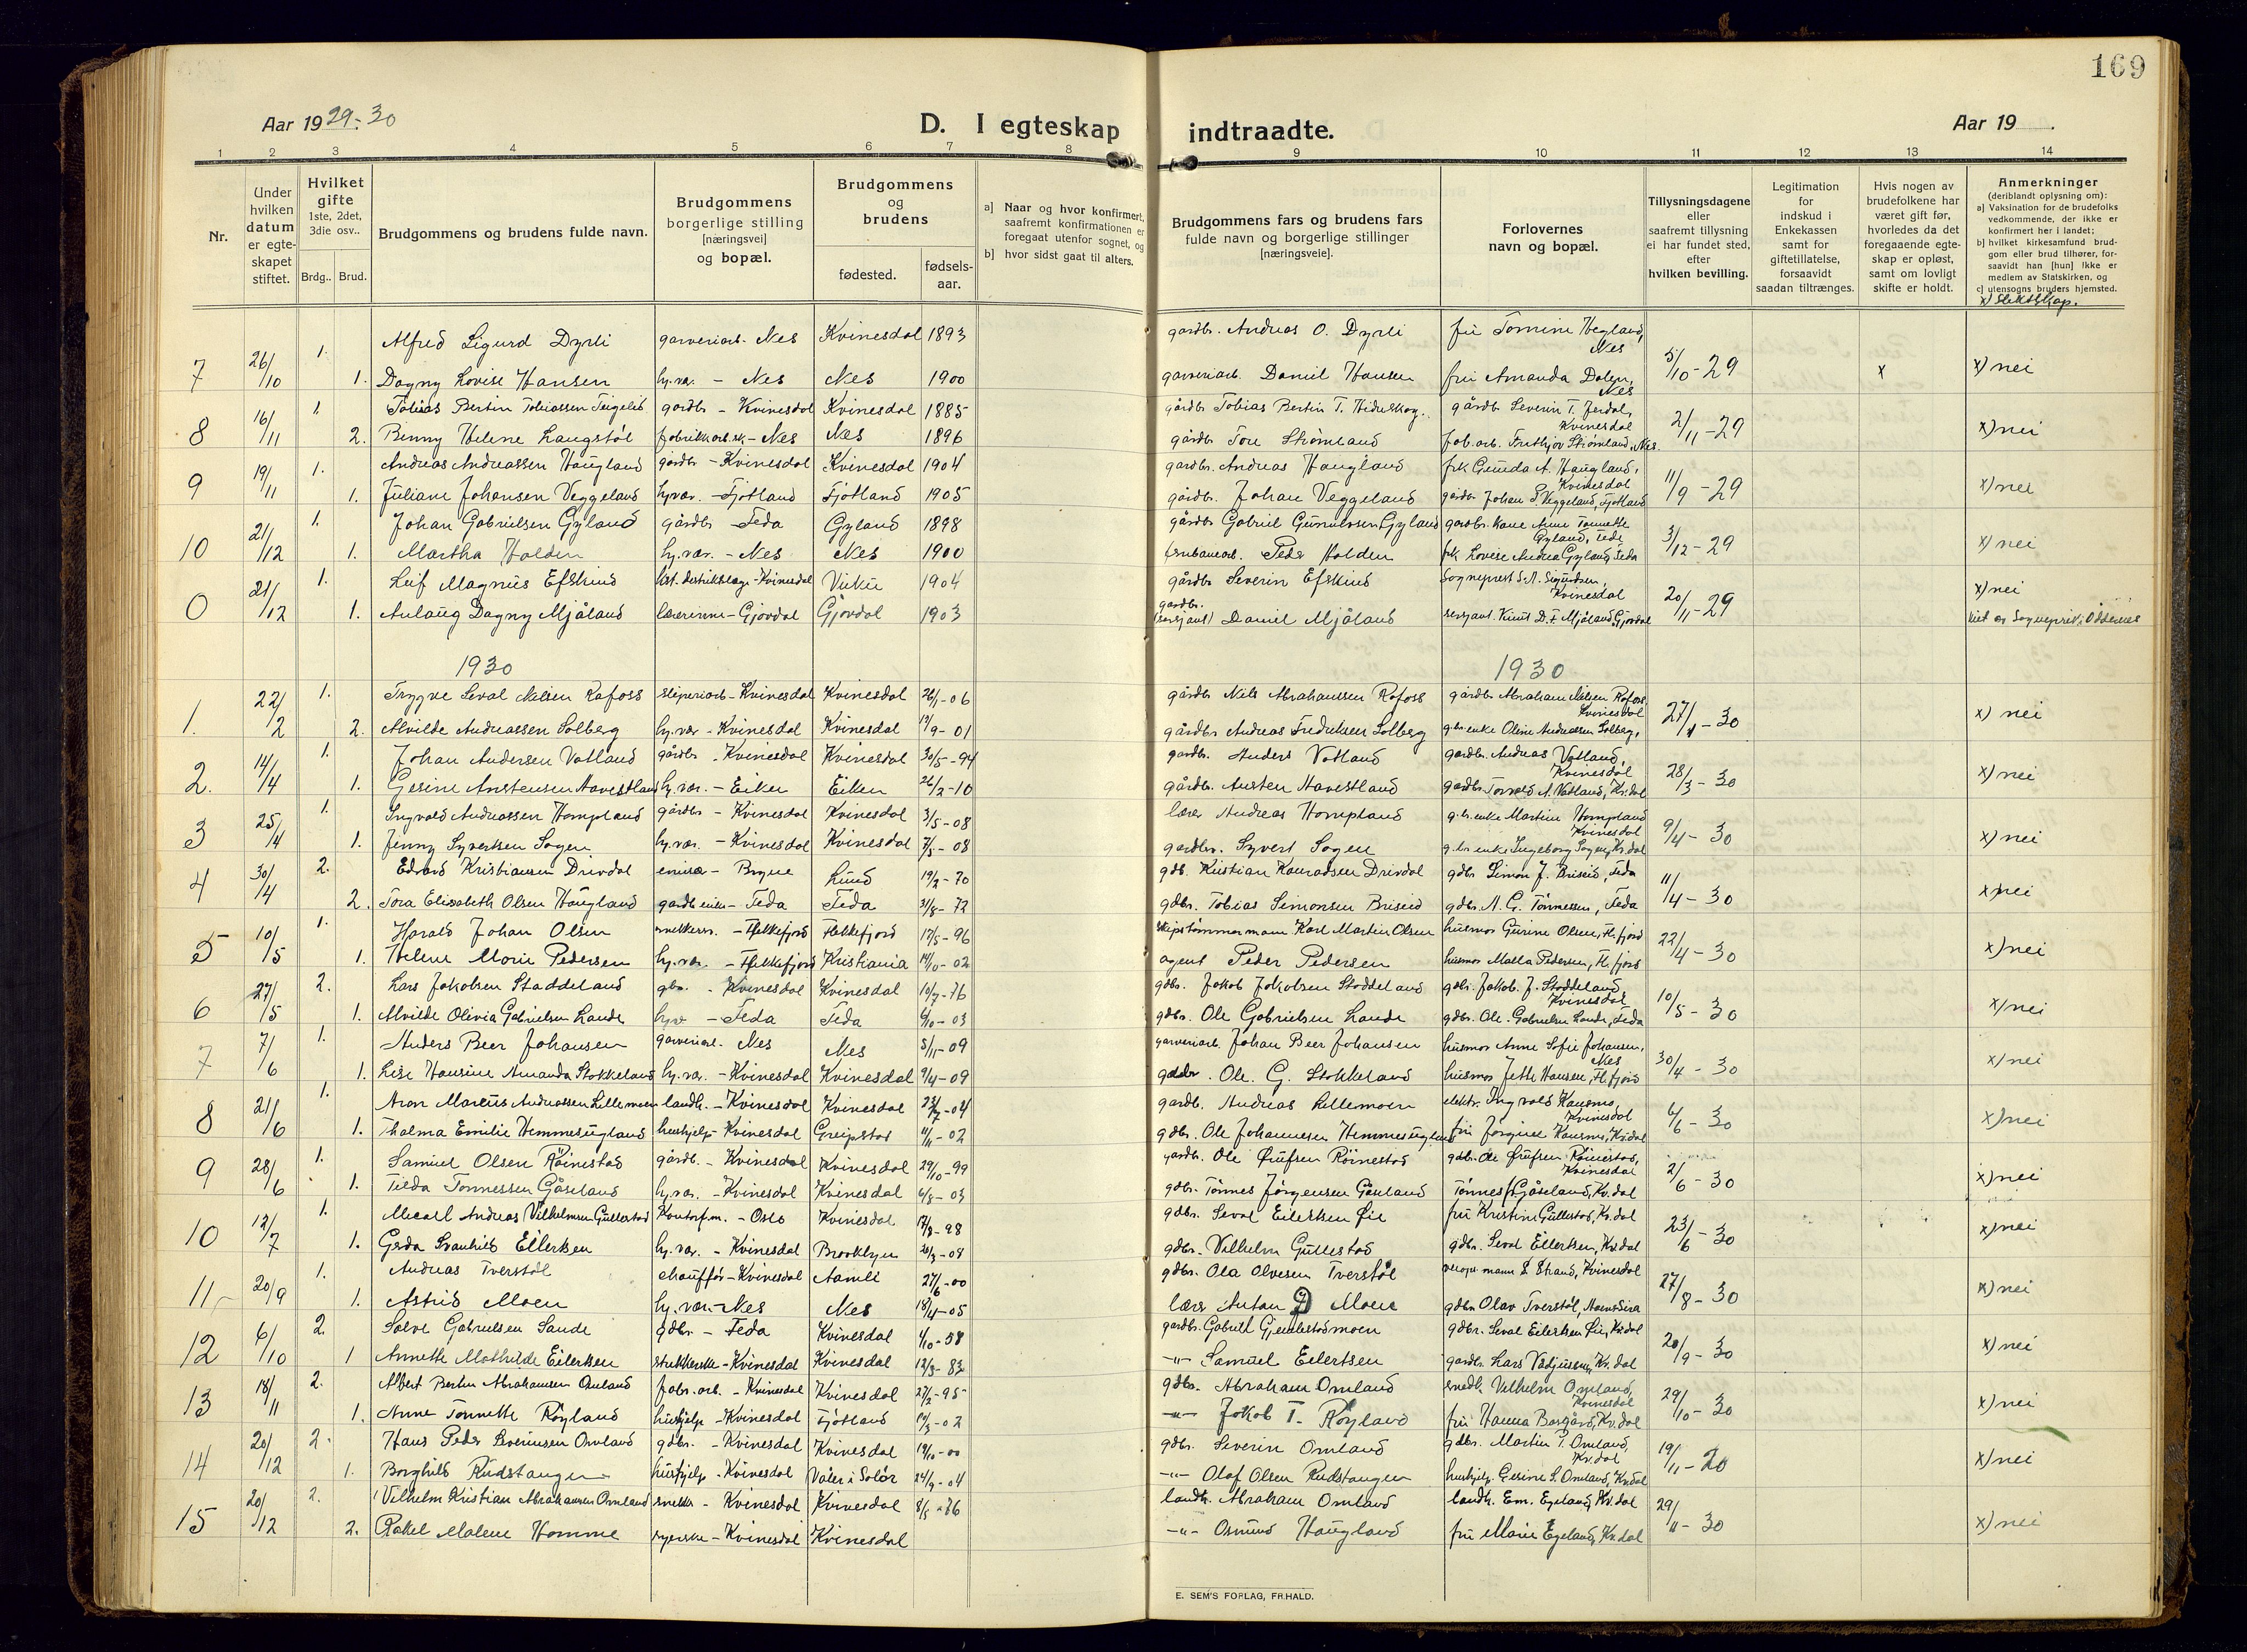 169
Aar 1929-30
D. I egteskap indtraadte.
Aar 19
1 2 3 4 5 6 7 8 9 10 11 12 13 14
Nr.
Under hvilken datum er egte-skapet stiftet.
Hvilket gifte 1ste, 2det, 3die osv..
Brdg.. Brud.
Brudgommens og brudens fulde navn.
Brudgommens borgerlige stilling [næringsvei] og bopæl.
Brudgommens og brudens
fødested. fødsels-aar.
a] Naar og hvor konfirmert, saafremt konfirmationen er foregaat utenfor sognet, og
b] hvor sidst gaat til alters.
Brudgommens fars og brudens fars fulde navn og borgerlige stillinger [næringsveie].
Forlovernes navn og bopæl.
Tillysningsdagene eller saafremt tillysning ei har fundet sted, efter hvilken bevilling.
Legitimation for indskud i Enkekassen samt for giftetillatelse, forsaavidt saadan tiltrænges.
Hvis nogen av brudefolkene har været gift før, hvorledes da det foregaaende egte-skap er opløst, samt om lovligt skifte er holdt.
Anmerkninger (deriblandt oplysning om):
a] Vaksination for de brudefolks vedkommende, der ikke er konfirmert her i landet;
b] hvilket kirkesamfund brud-gom eller brud tilhører, for-saavidt han [hun] ikke er medlem av Statskirken, og
c] utensogns bruders hjemsted.
x) Slektskap.
7 26/10 1. Alfred Sigurd Dyrli garveriarb. Nes Kvinesdal 1893 gardbr. Andreas O. Dyrli fru Tomine Hegland, Nes 5/10-29 x x) nei
1. Dagny Lovise Hansen hj.vær. - Nes Nes 1900 garveriarb. Daniel Hansen fru Amanda Dalen, Nes
8 16/11 1. Tobias Bertin Tobiassen gårdbr - Kvinesdal Kvinesdal 1885 gårdb Tobias Bertin T. gårdb Severin T. Jerdal, Kvinesdal 2/11-29 x) nei
2. Benny Helene Langstøl fabrikkarb.sk - Nes Nes 1896 gårdb Tore Strømland fab.arb. Frithjov Strømland, Nes.
9 19/11 1. Andreas Andreassen Haugland gårdbr - Kvinesdal Kvinesdal 1904 gardbr. Andreas Haugland frk Gunda A. Haugland, Kvinesdal 11/9-29 x) nei
1. Juliane Johansen Veggeland hj.vær. - Fjotland Fjotland 1905 gårdbr. Johan Veggeland gårdbr Johan S. Veggeland, Fjotland
10 21/12 1. Johan Gabrielsen Gyland gårdbr - Feda Gyland 1898 gårdbr Gabriel Gunderson Gyland gardbr. Kane Anne Tonnette Gyland, Feda 3/12-29 x) nei
1. Martha Holden hj.vær. - Nes Nes 1900 Peder Holden frk Lovise Andrea Gyland, Feda
0 21/12 1. Leif Magnus Efskind - Kvinesdal 1904 gårdbr Severin Efskind Sogneprest S.A. Sigurdsen, Kvinesdal 20/11-29 x) nei
1. Aulaug Dagny Mjåland lærerinne - Gjovdal Gjövdal 1903 gardbr. (sersjant) Daniel Mjåland sersjant. Knut D. Mjåland, Gjövdal
1930 1930
1. 22/2 1. Trygve Seval Nilsen Rafoss sliperiarb - Kvinesdal Kvinesdal 26/1-06 gårdbr Nils Abrahamsen Rafoss gårdbr Abraham Nilsen Rafoss, Kvinesdal 27/1-30 x) nei
2. Alvilde Andreassen Solberg hj.vær - Kvinesdal Kvinesdal 19/9-01 gårdbr Andreas Fredriksen Solberg g.br.enke Oline Andreassen Solberg,
2. 14/4 1. Johan Andersen Vatland gårdbr. - Kvinesdal Kvinesdal 30/5-94 gardbr. Anders Vatland gardbr. Andreas Vatland, Kvinesdal 28/3-30 x) nei
1. Gesine Anstensen Havestland hj.vær. - Eiken Eiken 26/2-10 gårdbr. Austen Havestland gardbr Torvald A. Vatland, Kv.dal
3 25/4 1. Ingvald Andreassen Hompland gårdbr - Kvinesdal Kvinesdal 3/5-08 lærer Andreas Hompland g.br.enke Martine Hompland Kvinesdal 9/4-30 x) nei
1. Jenny Syvertsen Sogen hj.vær. - Kvinesdal Kvinesdal 7/5-08 gardbr. Syvert Sogen g.br.enke Ingeborg Sogen, Kv.dal
4 30/4 2. Edvard Kristiansen Drivdal - Bryne Lund 19/2-70 gdb. Kristian Konradsen Drivdal gdbr Simon J. Briseid, Feda 11/4-30 x) nei
2. Tora Elisabeth Olsen Haugland gardb.enke - Feda Feda 31/8-72 gdbr. Tobias Simonsen Briseid gdbr. A. G. Tönnessen, Feda
5 10/5 1. Harald Johan Olsen snekkersv. - Flekkefjord Flekkefjord 17/5-96 Skipstömmermann Karl Martin Olsen husmor Gurine Olsen, Fl.fjord 22/4-30 x) nei
1. Helene Marie Pedersen hj.vær. - Flekkefjord Kristiania 14/10-02 agent Peder Pedersen husmor Malla Pedersen, Fl.fjord
6 27/5 2. Lars Jakobsen Staddeland gbr. - Kvinesdal Kvinesdal 10/7-76 gdbr. Jakob Jakobsen Staddeland gdbr. Jakob. J. Staddeland, Kvinesdal 10/5-30 x) nei
1. Alvilde Olivia Gabrielsen Lande hj.v - Feda Feda 6/10-03 gdbr. Ole Gabrielsen Lande gdbr. Ole. Gabrielsen Lande, Feda
7 7/6 1. Anders Beer Johansen garveriarb. Nes Nes 5/11-09 garveriarb. Johan Beer Johansen husmor Anne Sofie Johansen, Nes 30/4-30 x) nei
1. Lise Hansine Amanda Stokkeland hj.vær. - Kvinesdal Kvinesdal 9/4-09 gdbr. Ole. G. Stokkeland husmor Jette Hansen, Fl.fjord
8 21/6 1. Aron Marcus Andreassen Lillemoen landh. - Kvinesdal Kvinesdal 23/7-04 gardb. Andreas Lillemoen elektr. Ingvald Hausmo, Kvinesdal 6/6-30 x) nei
1. Thalma Emilie Hemmesugland hushjelp - Kvinesdal Greipstad 11/11-02 gdbr. Ole Johannesen Hemmesugland fru Jorgine Hausmo, Kv.dal
9 28/6 1. Samuel Olsen Röinestad gårdb. - Kvinesdal Kvinesdal 29/10-99 gardb. Ole Röinestad gdbr. Ole Röinestad, Kvinesdal 2/6-30 x) nei
1. Tilda Tonnessen Gåseland hj.vær. - Kvinesdal Kvinesdal 6/8-03 gdbr. Tönnes Jörgensen Gåseland Tönnes J. Gåseland, Kv.dal
10 12/7 1. Micael Andreas Vilhelmsen Gullestad Kontorf.m. - Oslo Kvinesdal 17/8-98 gdbr. Seval Eilertsen Öie fru Kristine Gullestad, Kv.dal 23/6-30 x) nei
1. Gerda Svanhild Eilertsen hj.vær. - Kvinesdal Brooklyn 20/3-08 gdbr. Vilhelm Gullestad gdbr. Seval Eilertsen, Kv.dal
11 20/9 1. Andreas Tverstöl chauffør - Kvinesdal Aamli 27/6-00 gdbr. Ola Olvesen Tverstöl S. Strand, Kvinesdal 27/8-30 x) nei
1. Astrid Moen hj.vær. - Nes Nes 18/4-05 lærer Antan Moen gdbr. Olav Tverstöl,
12 6/10 2. Salve Gabrielsen Sande gdbr. - Feda Kvinesdal 4/10-58 gardbr. Gabriel Gjendestadmoen gdbr. Seval Eilertsen Öie, Kv.dal 20/9-30 x) nei
1 Annette Mathilde Eilertsen strikkerske - Kvinesdal Kvinesdal 12/3-82 -"- Samuel Eilertsen gardbr Lars Vadjussen, Kv.dal
13 18/11 2. Albert Bertin Abrahamsen Omland fabr.arb. - Kvinesdal Kvinesdal 27/2-95 gdbr. Abraham Omland snedk. Vilhelm Omland, Kvinesdal 29/10-30 x) nei
1. Anne Tonnette Röyland hushjelp - Kvinesdal Fjotland 19/3-02 -"- Jakob T. Röyland fru Hanna Bargård, Kv.dal
14 20/12 2. Hans Peder Severinsen Omland gdbr. - Kvinesdal Kvinesdal 19/10-00 gdbr. Severin Omland gdbr. Martin T. Omland, Kv.dal 19/11-20 x) nei
1. Borghild Rudstangen hushjelp - Kvinesdal Våler i Solör 24/9-04 -"- Olaf Olsen Rudstangen hushjelp Gesine S. Omland, Kv.dal
15 20/12 2. Vilhelm Kristian Abrahamsen Omland snekker - Kvinesdal Kvinesdal 8/5-76 landh. Abraham Omland landh. Em. Egeland, Kv.dal 29/11-30 x) nei
2. Rakel Malene Homme syerske - Kvinesdal Kvinesdal -"- Osmund Haugland fru Marie Egeland, Kv.dal
E. SEM'S FORLAG, FR.HALD.